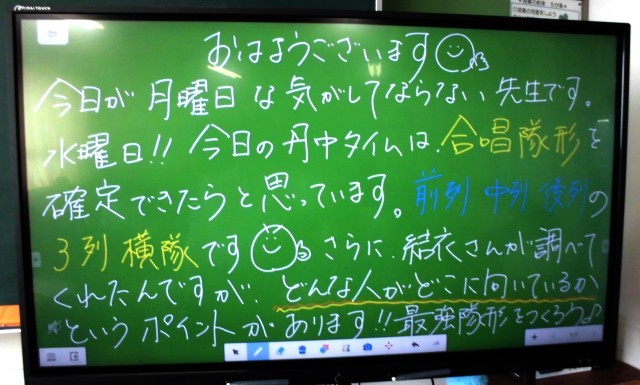 おはようございます
今日が月曜日な気がしてならない先生です。
水曜日!! 今日の丹中タイムは、合唱隊形を
確定できたらと思っています。前列 中列 後列の
3列横隊です さらに、結衣さんが調べて
くれたんですが、どんな人がどこに向いているか
というポイントがあります!! 最強隊形をつくろう♪